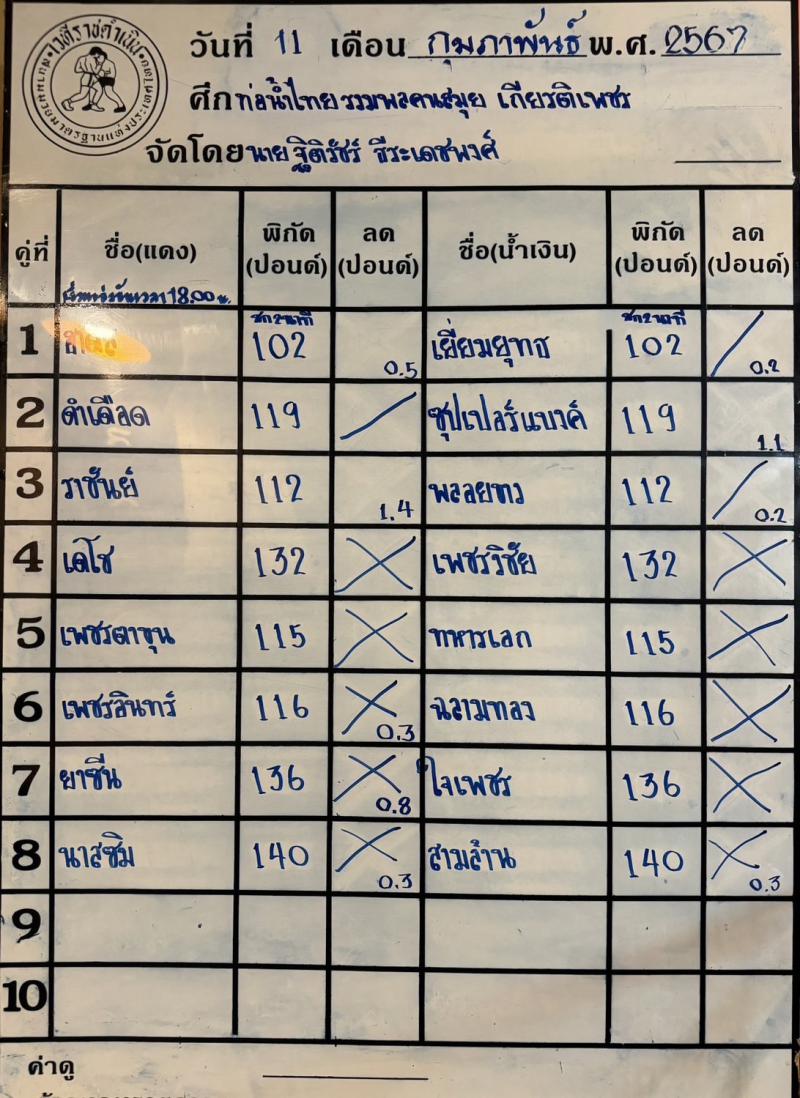 เวทีราชดำเนิน
สนามมวยมาตรฐานแห่งประเทศไทย
วันที่ 11 เดือน กุมภาพันธ์ พ.ศ. 2567
ศึก ท่อน้ำไทยรวมพลคนสมุย เกียรติเพชร
จัดโดย นายฐิติรัชร์ ธีระเดชพงศ์
คู่ที่ ชื่อ(แดง) พิกัด (ปอนด์) ลด (ปอนด์) ชื่อ(น้ำเงิน) พิกัด (ปอนด์) ลด (ปอนด์)
เวลา 18.00 น.
ชก 2 นาที ชก 2 นาที
1 102 0.5 เยี่ยมยุทธ 102 0.2
2 ดำเดือด 119 ซุปเปอร์แบงค์ 119 1.1
3 ราชันย์ 112 1.4 พลอยขาว 112 0.2
4 เดโช 132 เพชรวิชัย 132
5 เพชรตาขุน 115 ทหารเอก 115
6 เพชรอินทร์ 116 0.3 ฉลามทอง 116
7 ยาซีน 136 0.8 ใจเพชร 136
8 นาสซิม 140 0.3 สามล้าน 140 0.3
9
10
ค่าดู